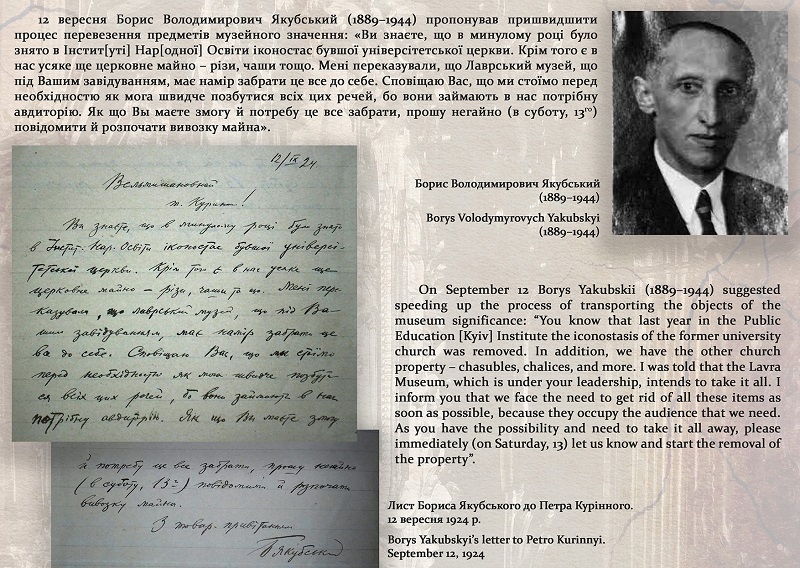 12 вересня Борис Володимирович Якубський (1889–1944) пропонував пришвидшити
процес перевезення предметів музейного значення: «Ви знаєте, що в минулому році було
знято в Інстит[уті] Нар[одної] Освіти іконостас бувшої університетської церкви. Крім того є в
нас усяке ще церковне майно – різи, чаши тощо. Мені переказували, що Лаврський музей, що
під Вашим завідуванням, має намір забрати це все до себе. Сповіщаю Вас, що ми стоїмо перед
необхідностю як мога швидче позбутися всіх цих речей, бо вони займають в нас потрібну
авдиторію. Як що Ви маєте змогу й потребу це все забрати, прошу негайно (в суботу, 13го)
повідомити й розпочати вивозку майна».
12/IX 24
Вельмишановний
т. Курінний!
Ви знаєте, що в минулому році було знято
в Інстит. Нар. Освіти іконостас бувшої універси-
тетської церкви. Крім того є в нас усяке ще
церковне майно – різи, чаши то що. Мені пере-
казували, що лаврський музей, що під Ва-
шим завідуванням, має намір забрати це
все до себе. Сповіщаю Вас, що ми стоїмо
перед необхідностю як мога швидче позбути-
ся всіх цих речей, бо вони займають в нас
потрібну авдиторію. Як що Ви маєте змогу
й потребу це все забрати, прошу негайно
(в суботу, 13го) повідомити й розпочати
вивозку майна.
З товар. привітанням
Б Якубський
Борис Володимирович Якубський
(1889–1944)
Borys Volodymyrovych Yakubskyi
(1889–1944)
On September 12 Borys Yakubskii (1889–1944) suggested
speeding up the process of transporting the objects of the
museum significance: “You know that last year in the Public
Education [Kyiv] Institute the iconostasis of the former university
church was removed. In addition, we have the other church
property – chasubles, chalices, and more. I was told that the Lavra
Museum, which is under your leadership, intends to take it all. I
inform you that we face the need to get rid of all these items as
soon as possible, because they occupy the audience that we need.
As you have the possibility and need to take it all away, please
immediately (on Saturday, 13) let us know and start the removal of
the property”.
Лист Бориса Якубського до Петра Курінного.
12 вересня 1924 р.
Borys Yakubskyi’s letter to Petro Kurinnyi.
September 12, 1924